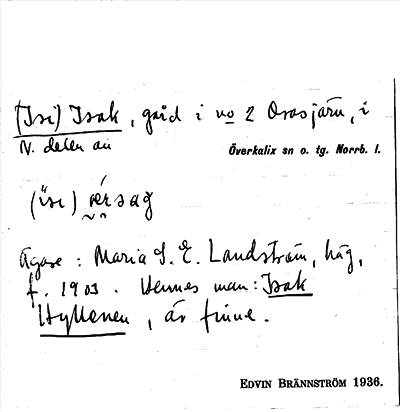 (Isi) Isak, gård i no 2 Orasjärv, i
N. delen av
Överkalix sn o. tg. Norrb. l.
Ägare : Maria S. E. Landström, häg,
f. 1903. Hennes man: Isak
Hyttenen, är finne.
EDVIN BRÄNNSTRÖM 1936.